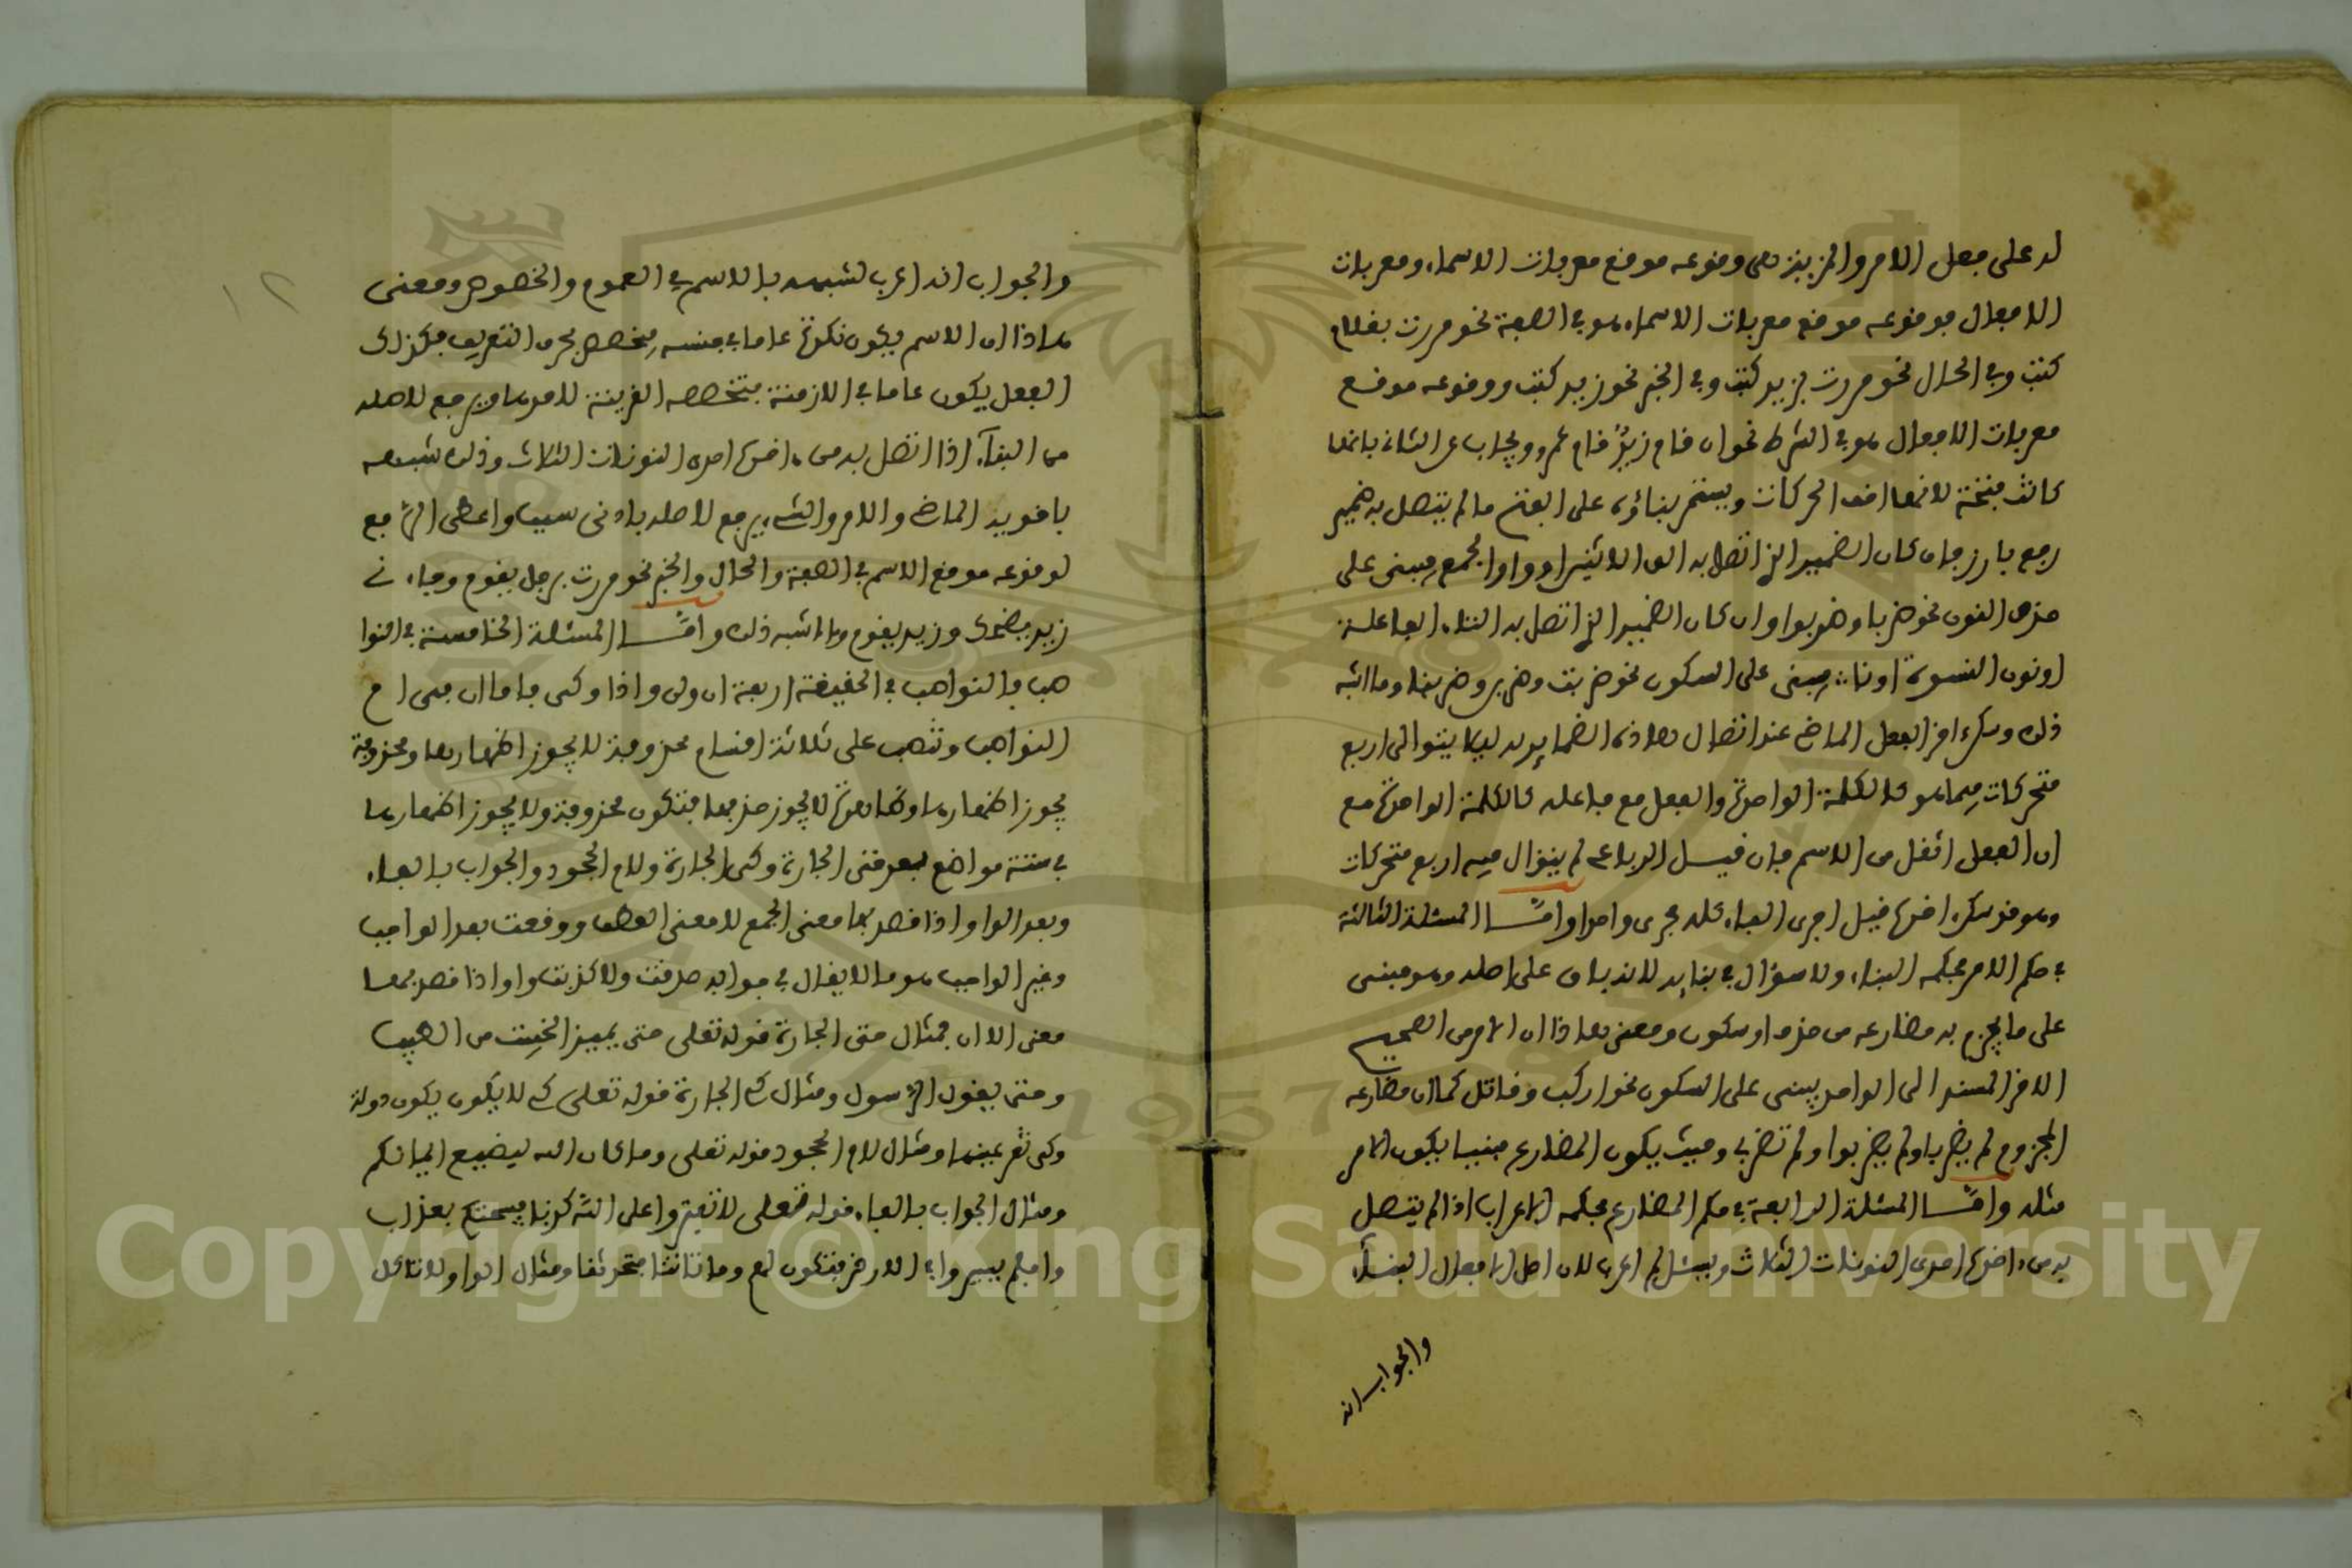 له على فعل الامر والمزيتز هى وقوعه موقع معربات الاسماء ومعربات
الافعال فوقوعه موقع معربات الاسماء هو في الصفة نحو مررت بغلام
كتب وفي الحال نحو مررت بزيد كتب وفي الخبر نحو زيد كتب ووقوعه موقع
معربات الافعال هو في الشرط نحو ان قام زيدٌ قام عمرو ويجاب عن الثاني بانها
كانت فتحة لانها اخف الحركات ويستمر بناؤه على الفتح ما لم يتصل به ضمير
رفع بارز فان كان الضمير الذي اتصل به الف الاثنين او واو الجمع فيبنى على
حذف النون نحو ضربا وضربوا وان كان الضمير الذي اتصل به التاء الفاعلة
او نون النسوة او نا فيبنى على السكون نحو ضربت وضربن وضربنا وما اشبه
ذلك وسكن اخر الفعل الماضي عند اتصال هذه الضماير به ليلا يتوالى اربع
متحركات فيما هو كالكلمة الواحدة والفعل مع فاعله كالكلمة الواحدة مع
ان الفعل اثقل من الاسم فان قيل الرباعي لم يتوال فيه اربع متحركات
وهو قد سكن اخره قيل اجرى الباب كله مجرى واحدا وامّا المسئلة الثالثة
في حكم الامر فحكمه البناء ولا سؤال في بنايه لانه باق على اصله وهو مبني
على ما يجزم به مضارعه من حذف او سكون ومعنى هذا ان الامر من الصحيح
الاخر المسند الى الواحد يبنى على السكون نحو اركب وقاتل كما ان مضارعه
المجزوم لم يضربا ولم يضربوا ولم تضربي وحيث يكون المضارع مبنيا يكون الامر
مثله وامّا المسئلة الرابعة في حكم المضارع فحكمه الاعراب اذا لم يتصل
به من اخره احدى النونات الثلاث ويسئل لم اعرب لان اصل الافعال البناء
والجواب انه
١٢
والجواب انه اعرب لشبهه بالاسم في العموم والخصوص ومعنى
هذا ان الاسم يكون نكرة عاما في جنسه فيخصص بحرف التعريف فكذلك
الفعل يكون عاما في الازمنة فتخصصه القرينة لاحدها ويرجع لاصله
من البناء اذا اتصل به من اخره احدى النونات الثلاث وذلك شبهه
باخويه الماضي والامر والشيء يرجع لاصله بادنى سبب واعطى الرفع
لوقوعه موقع الاسم في الصفة والحال والخبر نحو مررت برجل يقوم وجاءني
زيد يضحك وزيد يقوم وما اشبه ذلك وامّا المسئلة الخامسة في النوا
صب فالنواصب في الحقيقة اربعة ان ولن واذا وكى فاما ان فهى ام
النواصب وتنصب على ثلاثة اقسام محذوفة لا يجوز اظهارها ومحذوفة
يجوز اظهارها وظاهرة لا يجوز حذفها فتكون محذوفة ولا يجوز اظهارها
في ستة مواضع بعد حتى الجارة وكى الجارة ولام الجحود والجواب بالفاء
وبعد الواو اذا قصد بها معنى الجمع لا معنى العطف ووقعت بعد الواجب
وغير الواجب هو ما لا يقال في جوابه صدقت ولا كذبت واو اذا قصد بها
معنى الا ان فمثال حتى الجارة قوله تعلى حتى يميز الخبيث من الطيب
وحتى يقول الرسول ومثال كي الجارة قوله تعلى كي لا يكون يكون دولة
وكى تقر عينها ومثال لام الجحود قوله تعلى وما كان الله ليضيع ايمانكم
ومثال الجواب بالفاء قوله تعلى لا تفتروا على الله كذبا فيسحتكم بعذاب
وافلم يسيروا في الارض فتكون لهم وما تاتينا فتحدثنا ومثال الواو لا تاكل
Copyright © King Saud University
1957